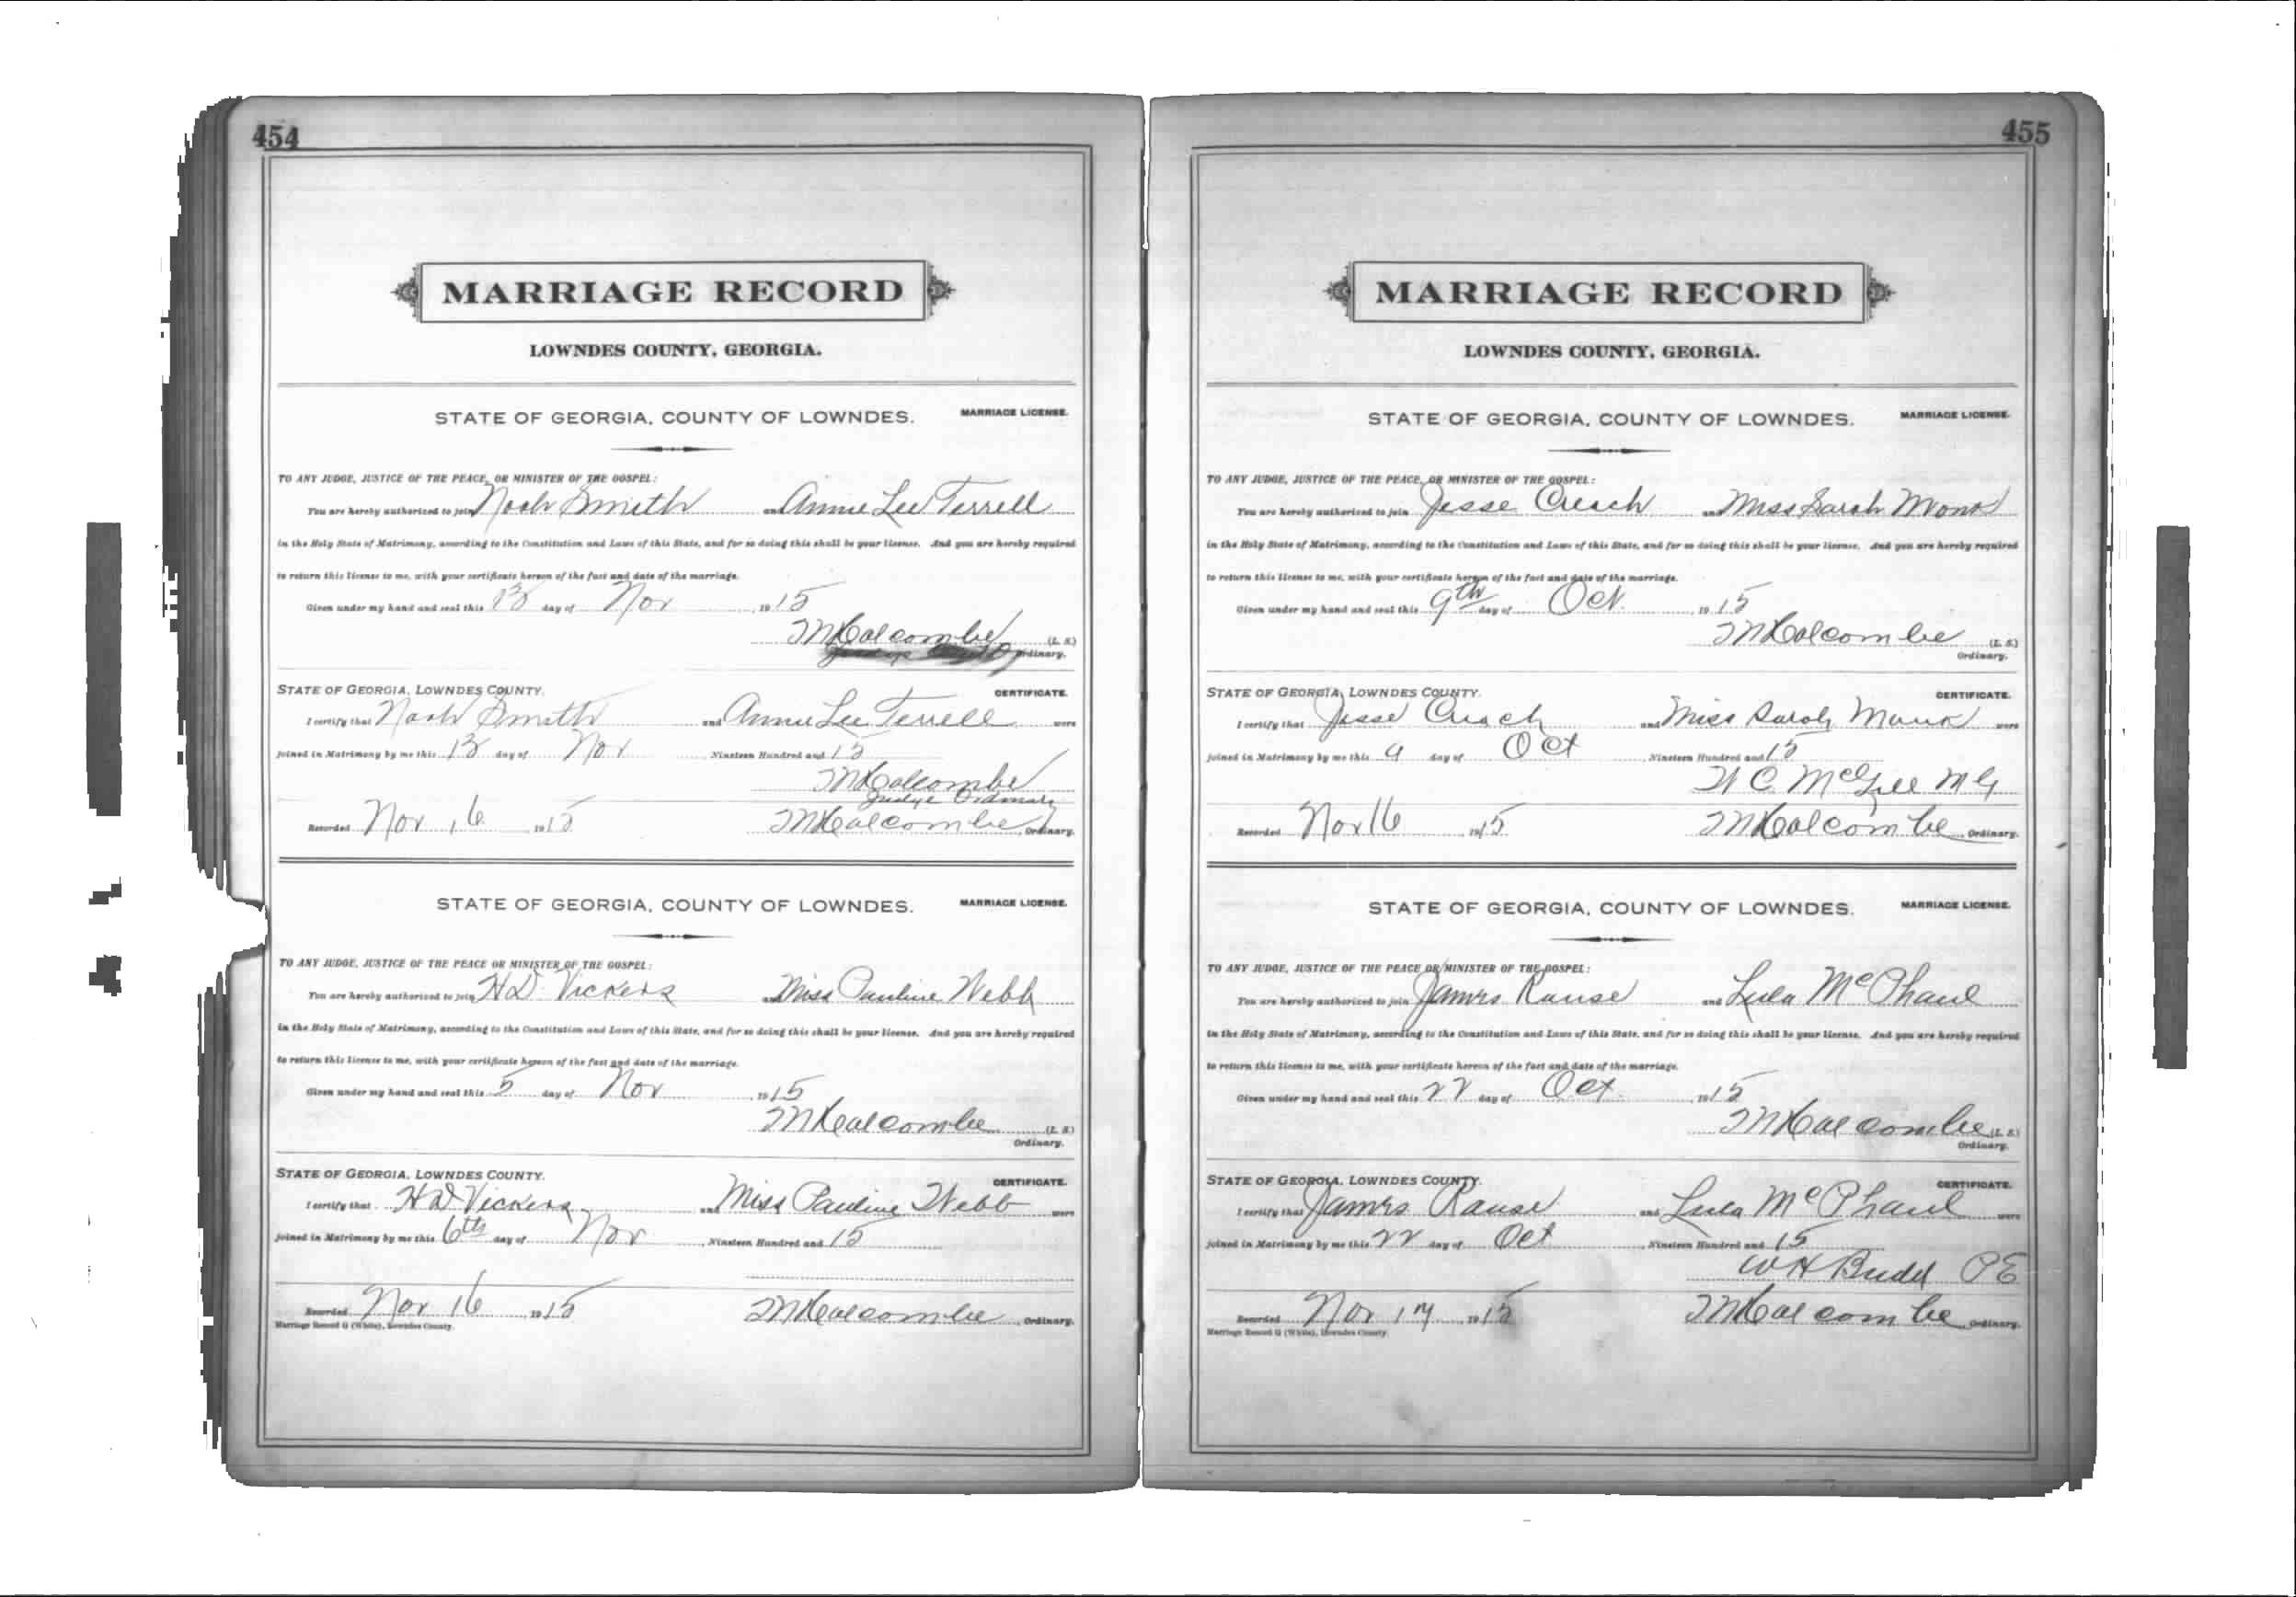 454
MARRIAGE RECORD
LOWNDES COUNTY, GEORGIA.
STATE OF GEORGIA, COUNTY OF LOWNDES. MARRIAGE LICENSE.
TO ANY JUDGE, JUSTICE OF THE PEACE, OR MINISTER OF THE GOSPEL:
You are hereby authorized to join Noah Smith and Annie Lee Terrell
in the Holy State of Matrimony, according to the Constitution and Laws of this State, and for so doing this shall be your license. And you are hereby required
to return this license to me, with your certificate hereon of the fact and date of the marriage.
Given under my hand and seal this 13 day of Nov 1915
(L. S.)
Ordinary.
STATE OF GEORGIA, LOWNDES COUNTY. CERTIFICATE.
I certify that Noah Smith and Annie Lee Terrell were
joined in Matrimony by me this 13 day of Nov Nineteen Hundred and 15
Judge Ordinary
Recorded Nov 16 1915 Ordinary.
STATE OF GEORGIA, COUNTY OF LOWNDES. MARRIAGE LICENSE.
TO ANY JUDGE, JUSTICE OF THE PEACE OR MINISTER OF THE GOSPEL:
You are hereby authorized to join H D Vickers and Miss Pauline Webb
in the Holy State of Matrimony, according to the Constitution and Laws of this State, and for so doing this shall be your license. And you are hereby required
to return this license to me, with your certificate hereon of the fact and date of the marriage.
Given under my hand and seal this 5 day of Nov 1915
(L. S.)
Ordinary.
STATE OF GEORGIA, LOWNDES COUNTY. CERTIFICATE.
I certify that H D Vickers and Miss Pauline Webb were
joined in Matrimony by me this 6th day of Nov Nineteen Hundred and 15
Recorded Nov 16 1915 Ordinary.
Marriage Record G (White), Lowndes County.
455
MARRIAGE RECORD
LOWNDES COUNTY, GEORGIA.
STATE OF GEORGIA, COUNTY OF LOWNDES. MARRIAGE LICENSE.
TO ANY JUDGE, JUSTICE OF THE PEACE, OR MINISTER OF THE GOSPEL:
You are hereby authorized to join Jesse Creech and Miss Sarah Monk
in the Holy State of Matrimony, according to the Constitution and Laws of this State, and for so doing this shall be your license. And you are hereby required
to return this license to me, with your certificate hereon of the fact and date of the marriage.
Given under my hand and seal this 9th day of Oct. 1915
(L. S.)
Ordinary.
STATE OF GEORGIA, LOWNDES COUNTY. CERTIFICATE.
I certify that Jesse Creech and Miss Sarah Monk were
joined in Matrimony by me this 9 day of Oct Nineteen Hundred and 15
McGill M G
Recorded Nov 16 1915 Ordinary.
STATE OF GEORGIA, COUNTY OF LOWNDES. MARRIAGE LICENSE.
TO ANY JUDGE, JUSTICE OF THE PEACE OR MINISTER OF THE GOSPEL:
You are hereby authorized to join James Rouse and Lula McPhaul
in the Holy State of Matrimony, according to the Constitution and Laws of this State, and for so doing this shall be your license. And you are hereby required
to return this license to me, with your certificate hereon of the fact and date of the marriage.
Given under my hand and seal this 22 day of Oct. 1915
(L. S.)
Ordinary.
STATE OF GEORGIA, LOWNDES COUNTY. CERTIFICATE.
I certify that James Rouse and Lula McPhaul were
joined in Matrimony by me this 22 day of Oct Nineteen Hundred and 15
W H Budd P E
Recorded Nov 17 1915 Ordinary.
Marriage Record G (White), Lowndes County.